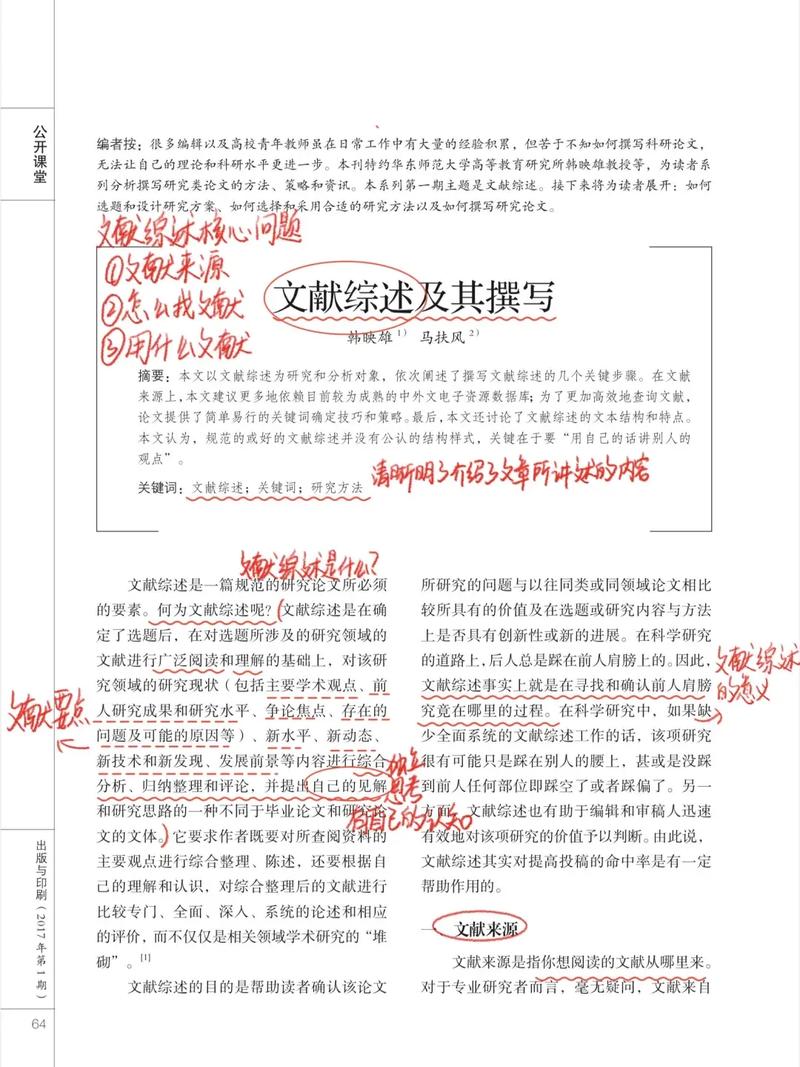 公开课堂
编者按：很多编辑以及高校青年教师虽在日常工作中有大量的经验积累，但苦于不知如何撰写科研论文，
无法让自己的理论和科研水平更进一步。本刊特约华东师范大学高等教育研究所韩映雄教授等，为读者系
列分析撰写研究类论文的方法、策略和资讯。本系列第一期主题是文献综述。接下来将为读者展开：如何
选题和设计研究方案、如何选择和采用合适的研究方法以及如何撰写研究论文。
文献综述核心问题
①文献来源
②怎么找文献
③用什么文献
文献综述及其撰写
韩映雄1) 马扶风2)
摘要：本文以文献综述为研究和分析对象，依次阐述了撰写文献综述的几个关键步骤。在文献
来源上，本文建议更多地依赖目前较为成熟的中外文电子资源数据库；为了更加高效地查询文献，
论文提供了简单易行的关键词确定技巧和策略。最后，本文还讨论了文献综述的文本结构和特点。
本文认为，规范的或好的文献综述并没有公认的结构样式，关键在于要“用自己的话讲别人的
观点”。
清晰明了介绍了文章所讲述的内容
关键词：文献综述；关键词；研究方法
文献综述是什么？
文献综述是一篇规范的研究论文所必须
的要素。何为文献综述呢？文献综述是在确
定了选题后，在对选题所涉及的研究领域的
文献进行广泛阅读和理解的基础上，对该研
究领域的研究现状（包括主要学术观点、前
人研究成果和研究水平、争论焦点、存在的
问题及可能的原因等）、新水平、新动态、
新技术和新发现、发展前景等内容进行综合
分析、归纳整理和评论，并提出自己的见解
和研究思路的一种不同于毕业论文和研究论
文的文体。它要求作者既要对所查阅资料的
主要观点进行综合整理、陈述，还要根据自
己的理解和认识，对综合整理后的文献进行
比较专门、全面、深入、系统的论述和相应
的评价，而不仅仅是相关领域学术研究的“堆
砌”。[1]
文献综述的目的是帮助读者确认该论文
文献要点
独立
思考
有自己的认知
所研究的问题与以往同类或同领域论文相比
较所具有的价值及在选题或研究内容与方法
上是否具有创新性或新的进展。在科学研究
的道路上，后人总是踩在前人肩膀上的。因此，
文献综述事实上就是在寻找和确认前人肩膀
究竟在哪里的过程。在科学研究中，如果缺
少全面系统的文献综述工作的话，该项研究
很有可能只是踩在别人的腰上，甚或是没踩
到前人任何部位即踩空了或者踩偏了。另一
方面，文献综述也有助于编辑和审稿人迅速
有效地对该项研究的价值予以判断。由此说，
文献综述其实对提高投稿的命中率是有一定
帮助作用的。
文献综述
的意义
一 文献来源
文献来源是指你想阅读的文献从哪里来。
对于专业研究者而言，毫无疑问，文献来自
出版与印刷（2017年第1期）
64